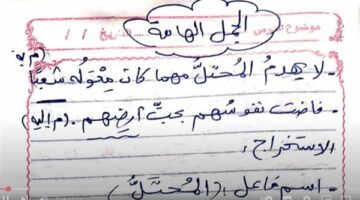 موضوع الدرس التاريخ / /
الجمل الهامة
- لا يهدمُ المُحتلُّ مهما كانت قوتُه شعبًا (م به)
- فاضت نفوسُهم بحبِّ أرضِهم. (م إليه)
الاستخراج:
- اسم فاعل: (المُحْتَلُّ)